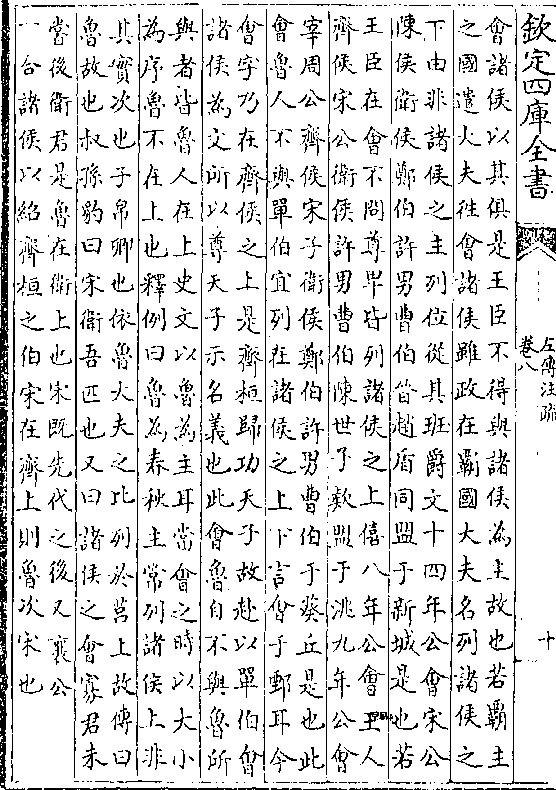 欽定四庫全書
左傳注疏
卷八
十
會諸侯以其俱是王臣不得與諸侯為主故也若霸主
之國遣大夫徃會諸侯雖政在霸國大夫名列諸侯之
下由非諸侯之主列位從其班爵文十四年公會宋公
陳侯衛侯鄭伯許男曹伯晉趙盾同盟于新城是也若
王臣在會不問尊卑皆列諸侯之上僖八年公會王人
齊侯宋公衛侯許男曹伯陳世子款盟于洮九年公會
宰周公齊侯宋子衛侯鄭伯許男曹伯于葵丘是也此
會魯人不與單伯宜列在諸侯之上下言會于鄄耳今
會字乃在齊侯之上是齊桓歸功天子故赴以單伯會
諸侯為文所以尊天子示名義也此會魯自不與魯所
與者皆魯人在上史文以魯為主耳當會之時以大小
為序魯不在上也釋例曰魯為春秋主常列諸侯上非
其實次也子帛卿也依魯大夫之比列於莒上故傳曰
魯故也叔孫豹曰宋衛吾匹也又曰諸侯之會寡君未
嘗後衛君是魯在衛上也宋既先代之後又襄公
一合諸侯以紹齊桓之伯宋在齊上則魯次宋也